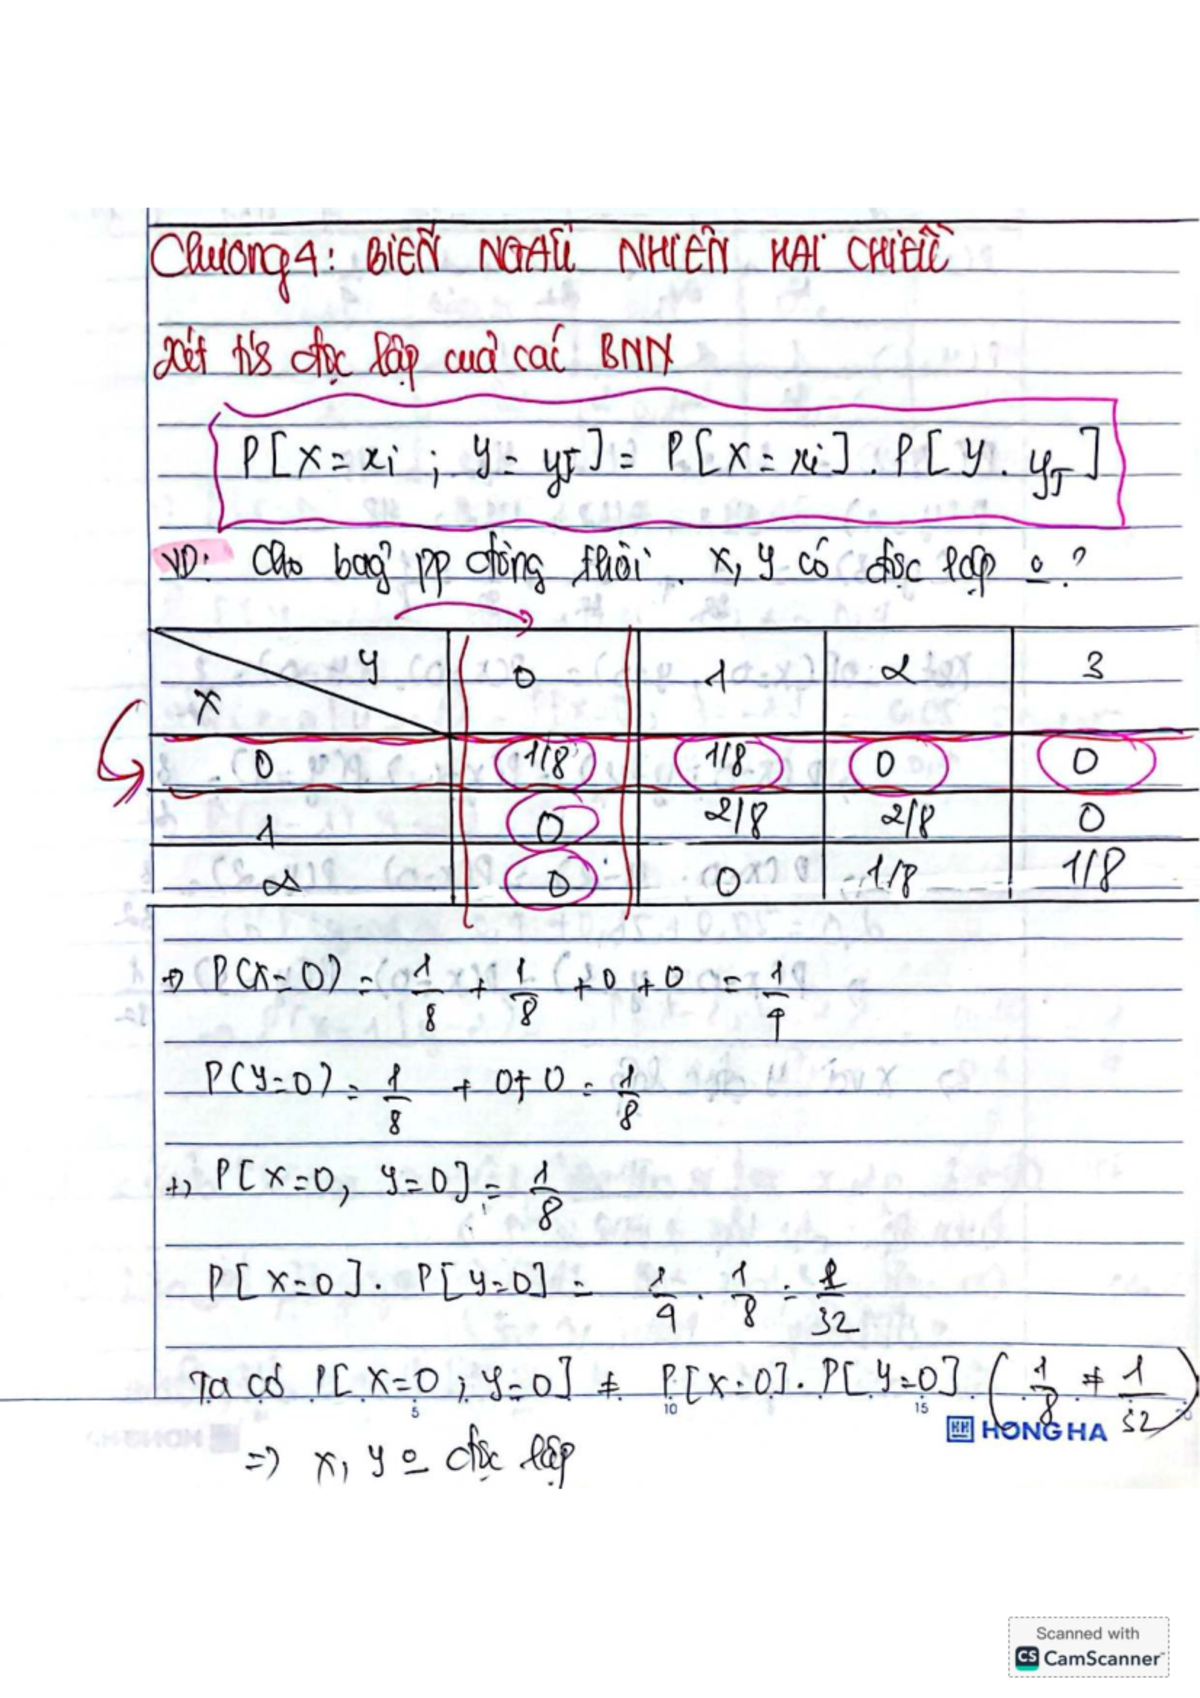 Chương 4: BIẾN NGẪU NHIÊN HAI CHIỀU
Xét t/s độc lập của các BNN
P[X = xi ; Y = yJ] = P[X = xi] . P[Y . yJ]
VD: Cho bảng pp đồng thời. X, Y có độc lập o ?
Y 0 1 2 3
X
0 1/8 1/8 0 0
1 0 2/8 2/8 0
2 0 0 1/8 1/8
+) P(X=0) = 1/8 + 1/8 + 0 + 0 = 1/4
P(Y=0) = 1/8 + 0 + 0 = 1/8
+) P[X=0, Y=0] = 1/8
P[X=0] . P[Y=0] = 1/4 . 1/8 = 1/32
Ta có P[X=0 ; Y=0] ≠ P[X=0] . P[Y=0] (1/8 ≠ 1/32)
5 10 15 20
HONG HA
=> X, Y o độc lập
Scanned with
CS CamScanner